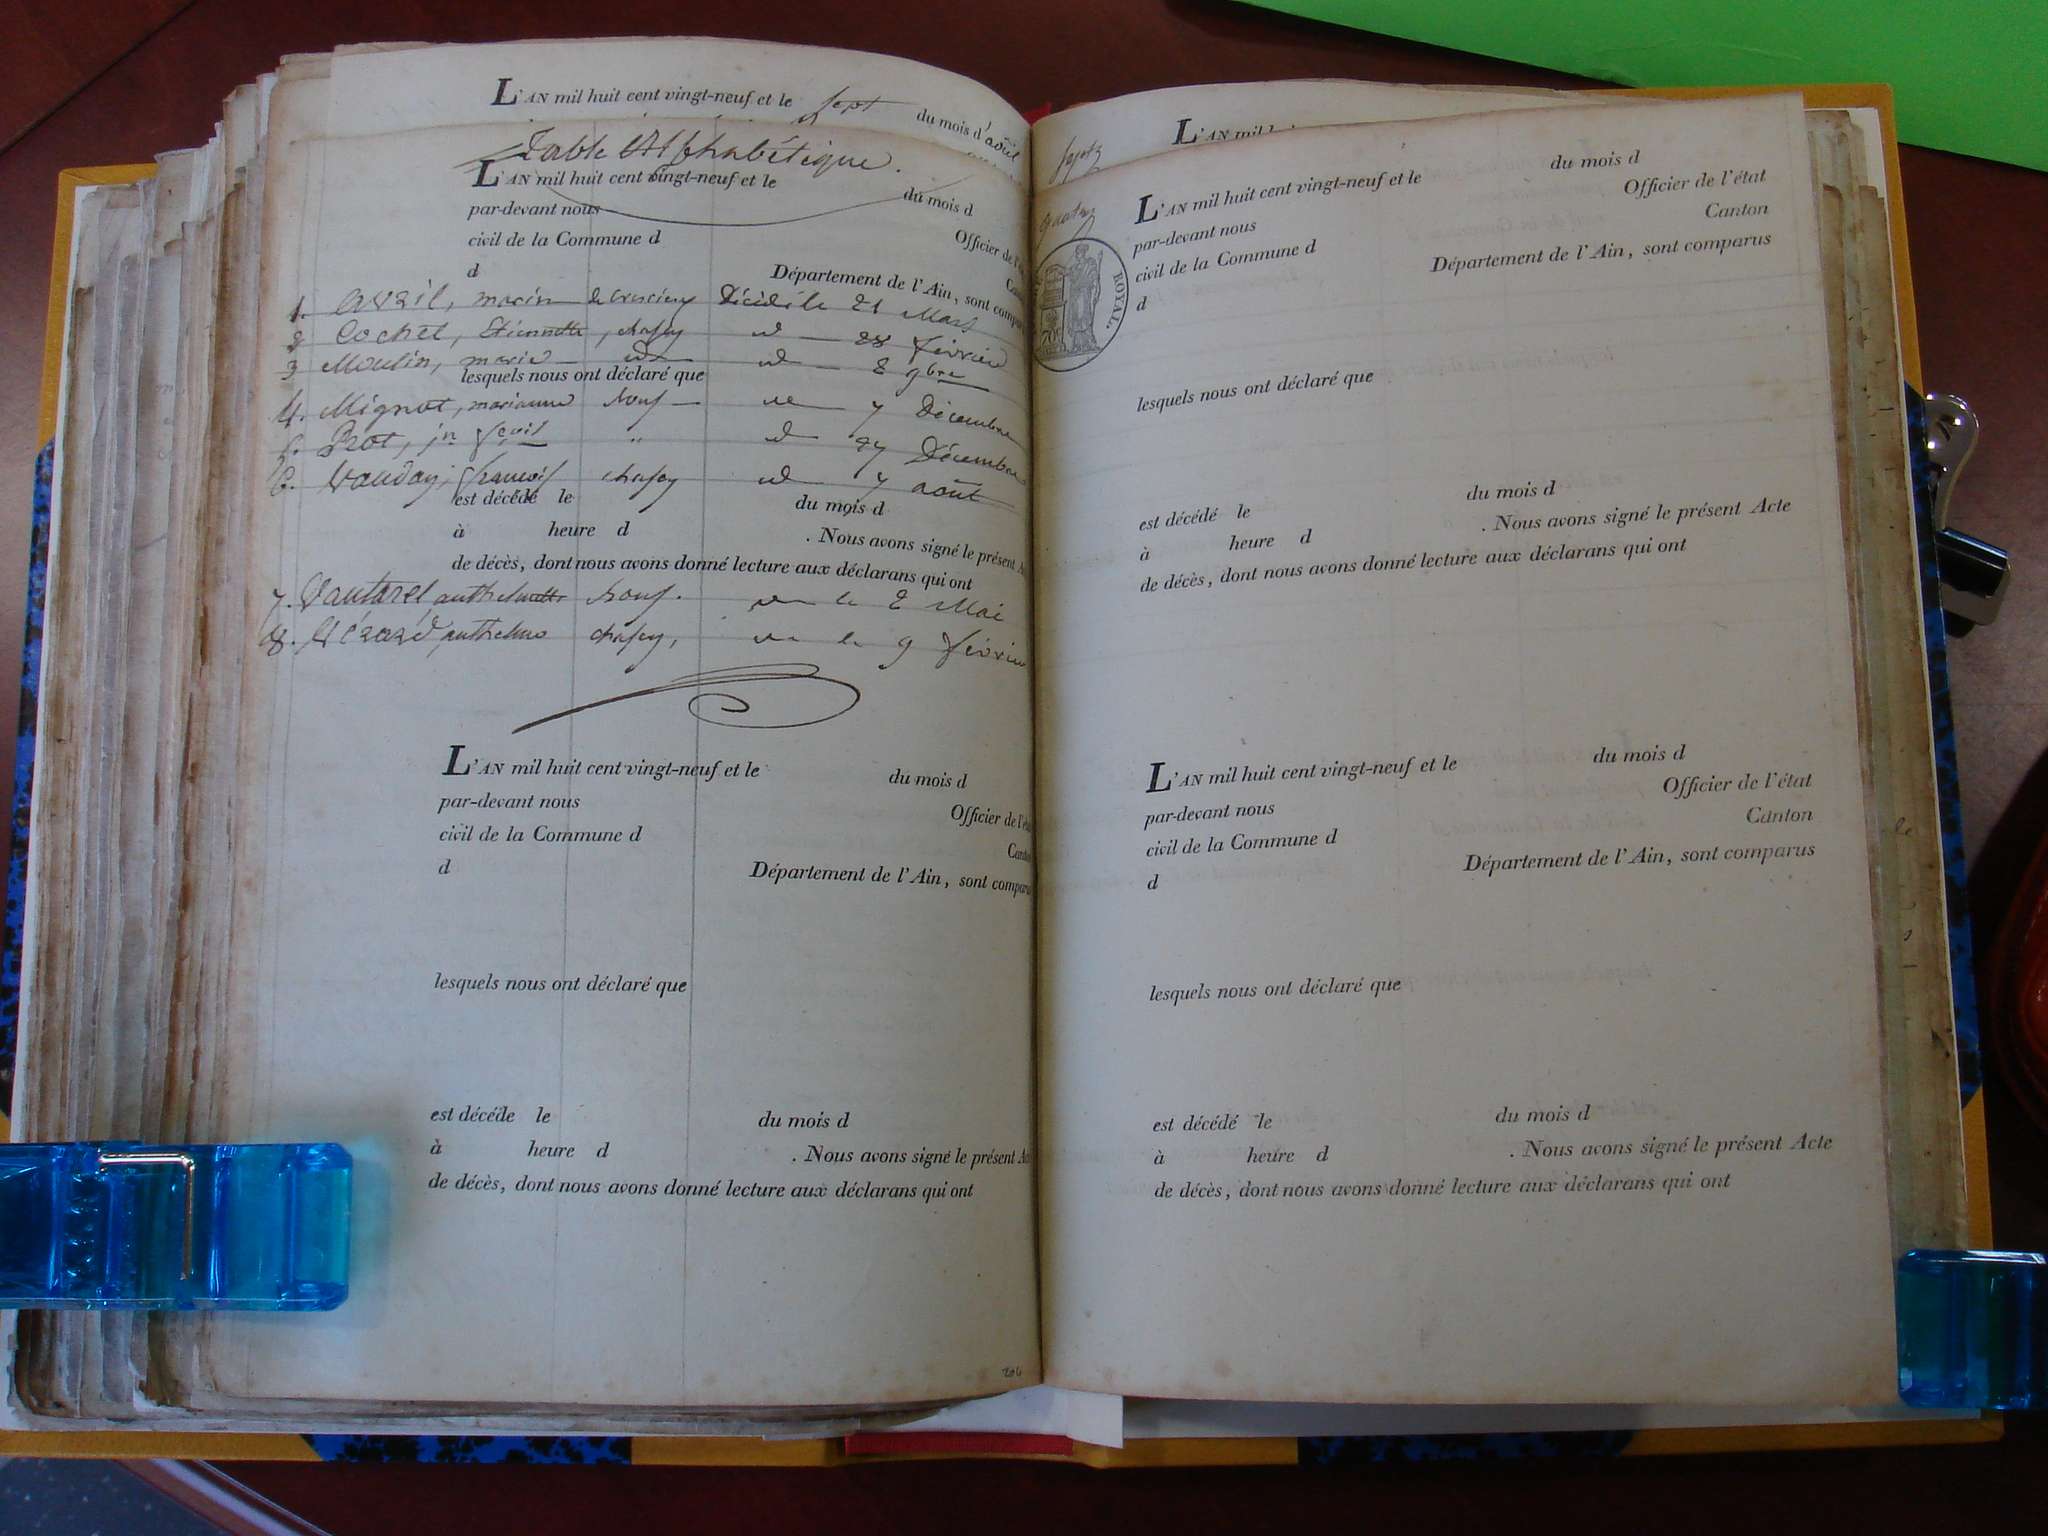 L'AN mil huit cent vingt-neuf et le sept du mois d'août
Table Alphabétique.
L'AN mil huit cent vingt-neuf et le du mois d
par-devant nous Officier de l'
civil de la Commune d Can
d Département de l'Ain, sont compar
1. avril, marin Décidé le 21 Mars
2 Cochet, Etiennette, chasey id 28 février
3 Moulin, marie id id 8 9bre
lesquels nous ont déclaré que
4. Mignot, marianne id 7 Décembre
5. Prot, jn id 27 Décembre
6. Vauday, françois chasey id 7 août
est décédé le du mois d
à heure d . Nous avons signé le présent A
de décès, dont nous avons donné lecture aux déclarans qui ont
7. Vautarel anthelmette le 2 Mai
8. anthelme chasey, le 9 février
L'AN mil huit cent vingt-neuf et le du mois d
par-devant nous Officier de l'éta
civil de la Commune d Canto
d Département de l'Ain, sont comparu
lesquels nous ont déclaré que
est décédé le du mois d
à heure d . Nous avons signé le présent Ac
de décès, dont nous avons donné lecture aux déclarans qui ont
204
L'AN mil
sept
ROYAL.
L'AN mil huit cent vingt-neuf et le du mois d
par-devant nous Officier de l'état
civil de la Commune d Canton
d Département de l'Ain, sont comparus
lesquels nous ont déclaré que
est décédé le du mois d
à heure d . Nous avons signé le présent Acte
de décès, dont nous avons donné lecture aux déclarans qui ont
L'AN mil huit cent vingt-neuf et le du mois d
par-devant nous Officier de l'état
civil de la Commune d Canton
d Département de l'Ain, sont comparus
lesquels nous ont déclaré que
est décédé le du mois d
à heure d . Nous avons signé le présent Acte
de décès, dont nous avons donné lecture aux déclarans qui ont